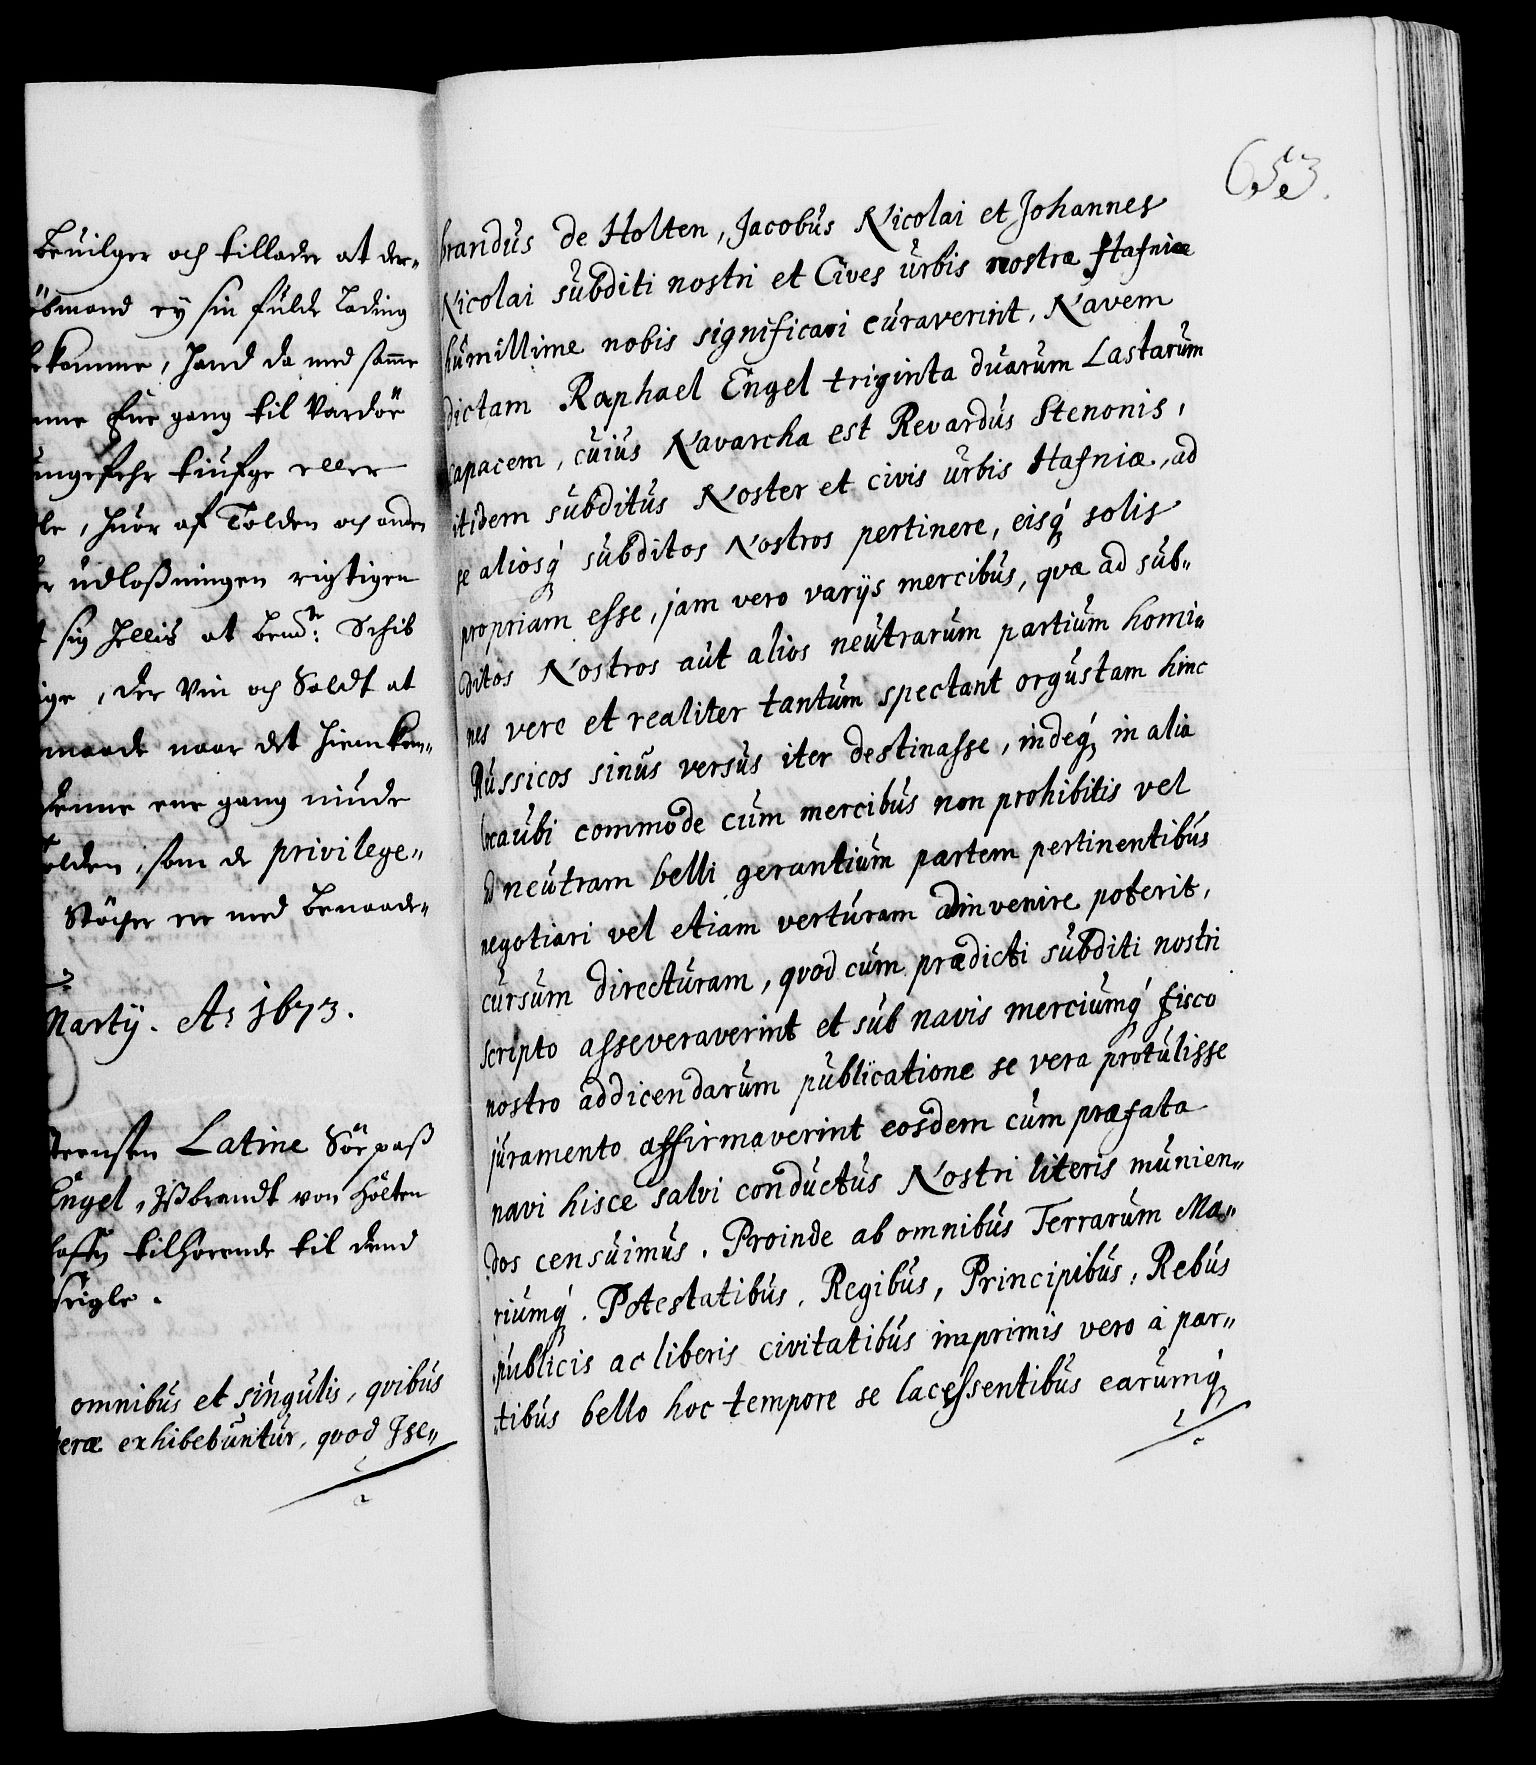 bevilger och tillader at der-
öbmand ey sin fulde Lading
bekomme, hand da med samme
enne Eene gang til Vardöe
ungefehr tiufge eller
le, huor af Tolden och anden
udloßningen rigtigen
sig hellis at bemte: Schib
ige, der Viin och Saldt at
maade naar det hiemkom-
denne eene gang niude
olden, som de privilege-
Stöcher ere med benaade-
Martÿ. Ao 1673.
Latine Söepaß
Engel, Ißbrandt von Holten
haffn tilhörende til dend
seigle.
omnibus et singulis, qvibus
eræ exhibebuntur, qvod Jse-
653.
brandus de Holten, Jacobus Nicolai et Johannes
Nicolai subditi nostri et Cives urbis nostræ Hafniæ
humillime nobis significari curaverint, Navem
dictam Raphael Engel triginta duarum Lastarum
capacem, cuius Navarcha est Revardus Stenonis,
itidem subditus Noster et civis urbis Hafniæ, ad
se aliosq́ subditos Nostros pertinere, eisq́ solis
propriam esse, jam vero varijs mercibus, qvæ ad sub-
ditos Nostros aut alios neutrarum partium homi-
nes vere et realiter tantum spectant orgustam hinc
Russicos sinus versus iter destinasse, indeq́ in alia
loca ubi commode cum mercibus non prohibitis vel
ad neutram belli gerantium partem pertinentibus
negotiari vel etiam verturam adinvenire poterit,
cursum directuram, qvod cum prædicti subditi nostri
scripto asseveraverint et sub navis merciumq́ fisco
nostro addicendarum publicatione se vera protulisse
juramento affirmaverint eosdem cum præfata
navi hisce salvi conductus Nostri literis munien-
dos censuimus. Proinde ab omnibus Terrarum Ma-
riumq́. Potestatibus, Regibus, Principibus, Rebus
publicis ac liberis civitatibus inprimis vero à par-
tibus bello hoc tempore se lacessentibus earumq́